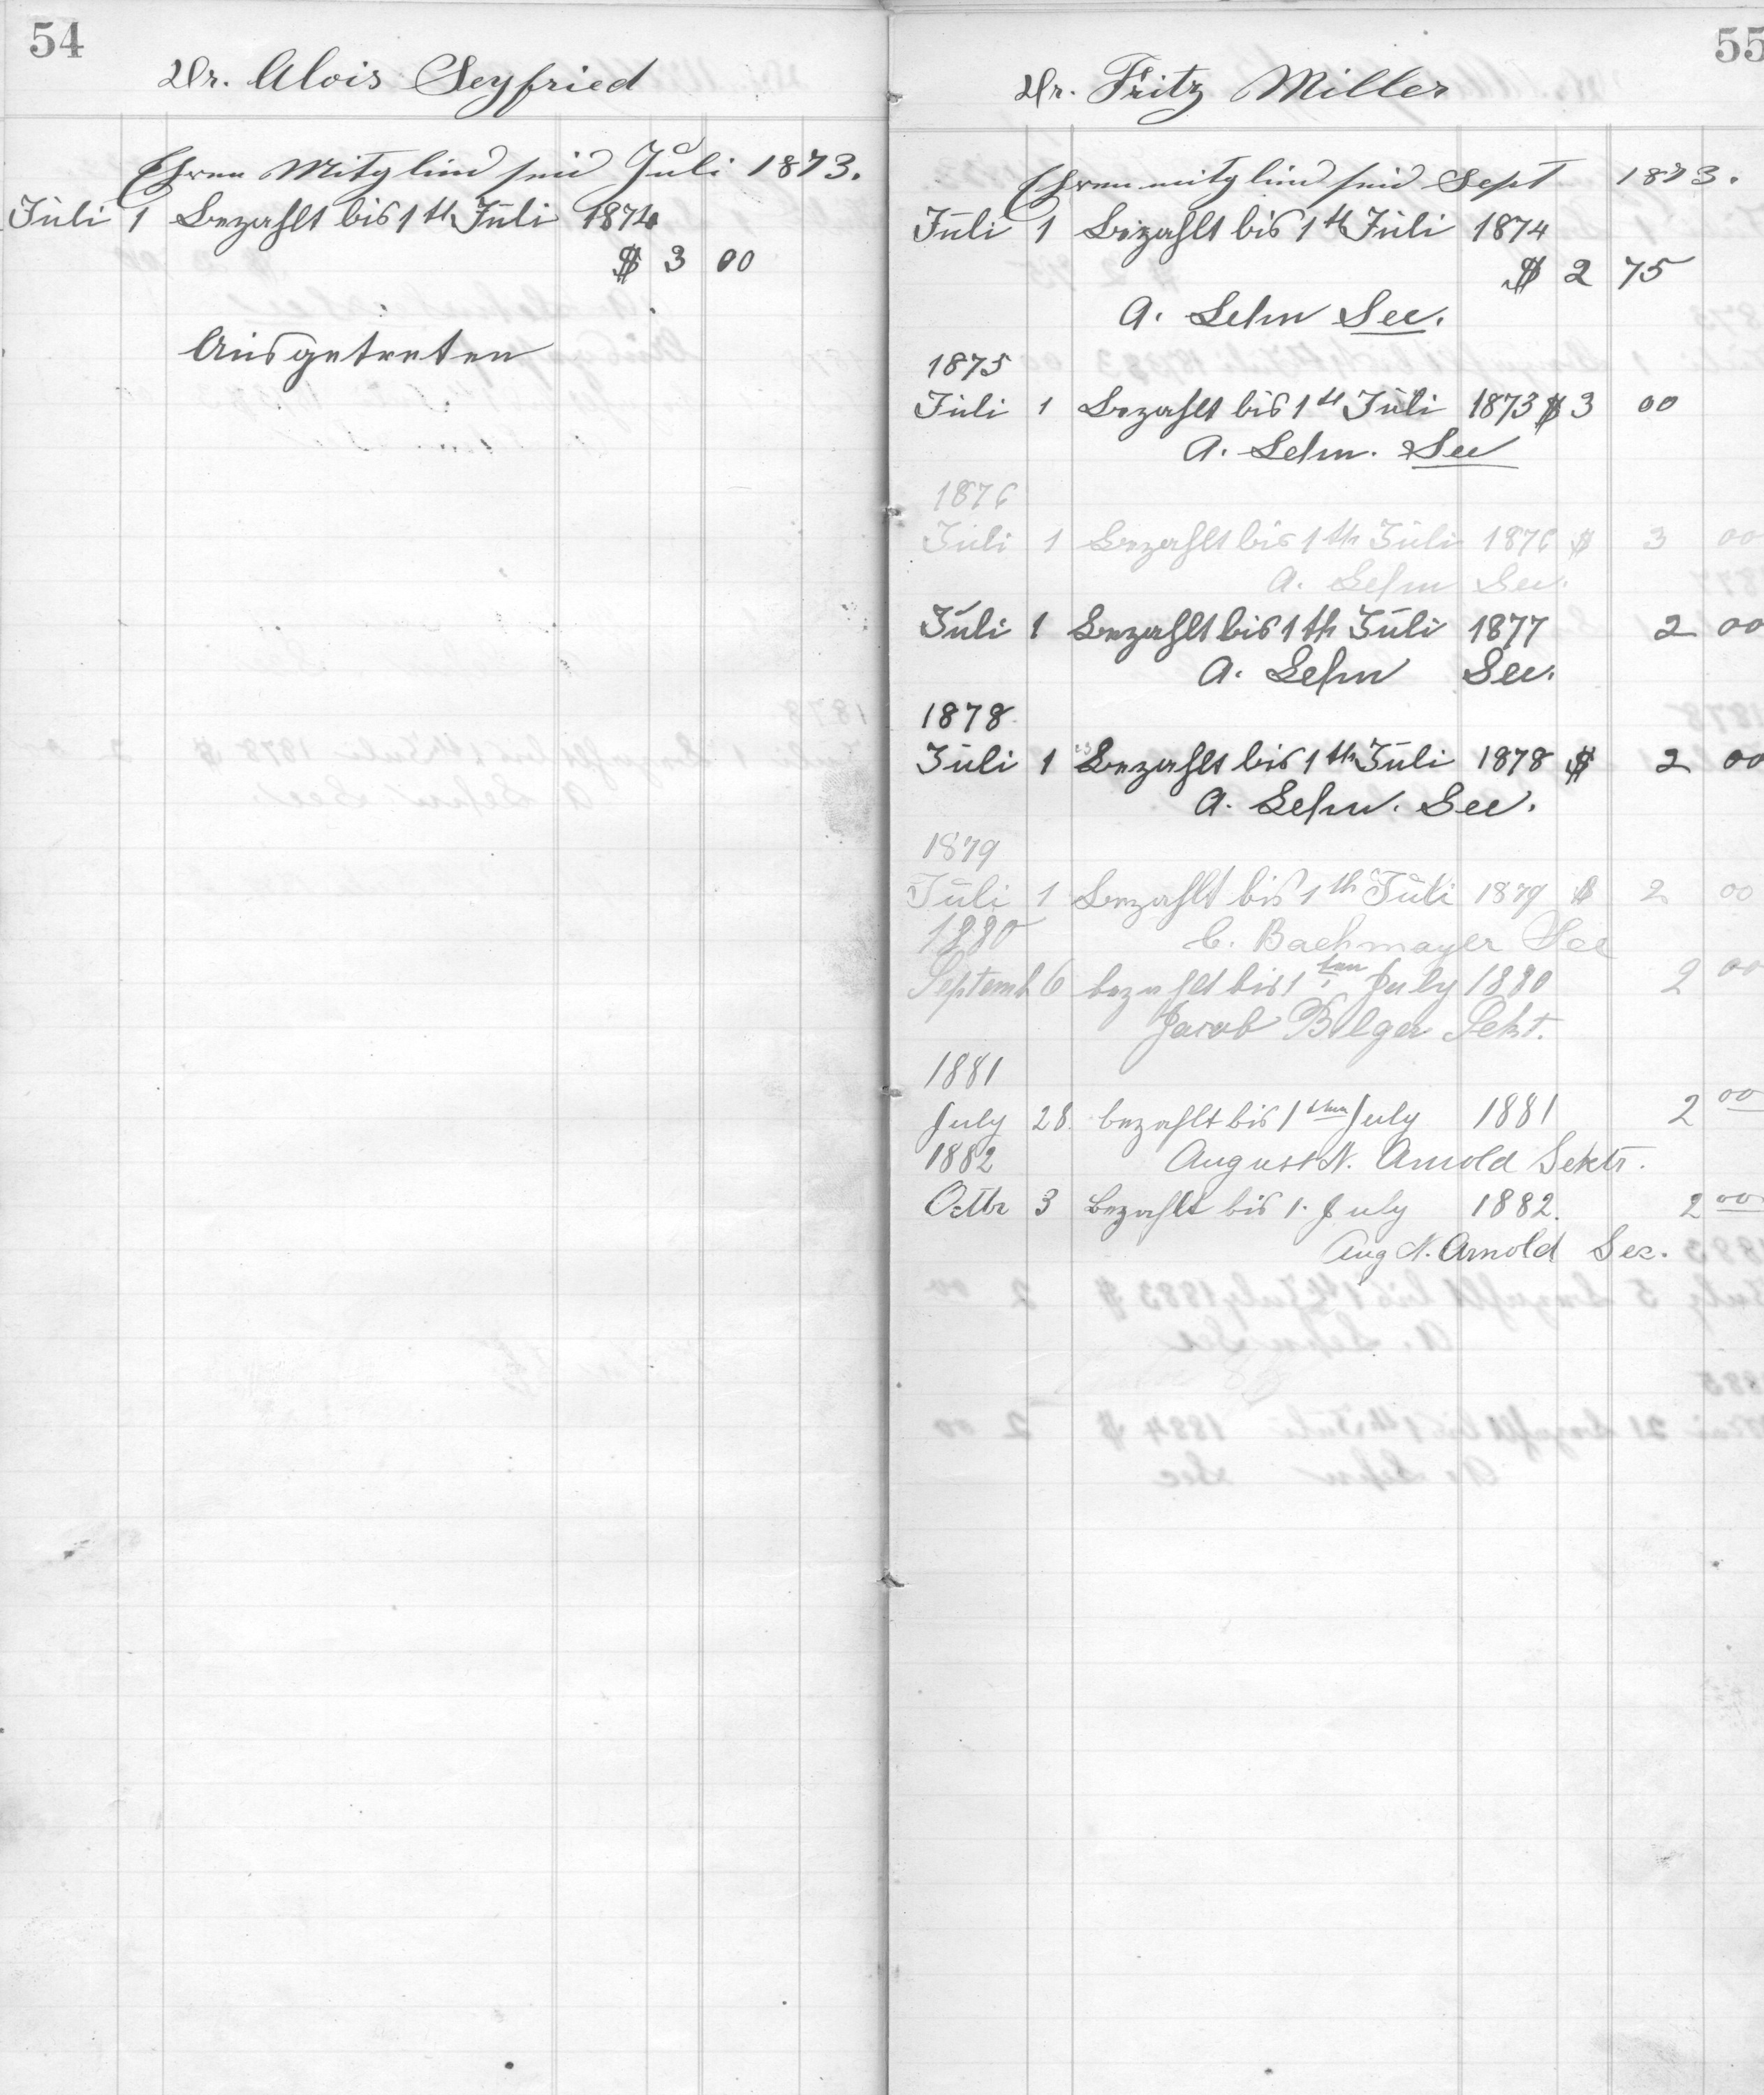 54
Dr. Alois Seyfried
Ehren Mitglied seid Juli 1873.
Juli 1 Bezahlt bis 1th Juli 1874
$ 3 00
Ausgetreten
55
Dr. Fritz Miller
Ehrenmitglied seid Sept 1873.
Juli 1 Bezahlt bis 1th Juli 1874
$ 2 75
A. Lehn Sec.
1875
Juli 1 Bezahlt bis 1th Juli 1873 $ 3 00
A. Lehn. Sec
1876
Juli 1 Bezahlt bis 1th Juli 1876 $ 3 00
A. Lehn Sec.
Juli 1 Bezahlt bis 1th Juli 1877 2 00
A. Lehn Sec.
1878
Juli 1 Bezahlt bis 1th Juli 1878 $ 2 00
A. Lehn. Sec.
1879
Juli 1 Bezahlt bis 1th Juli 1879 $ 2 00
1880 C. Bachmayer Sec
Septemb 6 bezahlt bis 1ten July 1880 2 00
Jacob Bilger Sekt.
1881
July 28. bezahlt bis 1ten July 1881 2 00
1882 August N. Arnold Sektr.
Octbr 3 Bezahlt bis 1. July 1882. 2 00
Aug N. Arnold Sec.